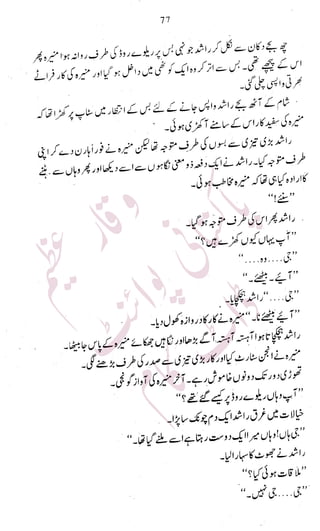 77
چھ بجے دکان سے نکل کر راشد جونہی بس پر ریلوے روڈ کی طرف روانہ ہوا منیرہ پھر
اس کے پیچھے تھی۔ بس سے اتر کر وہ ایک کوٹھی میں داخل ہو گیا اور منیرہ کی کار فراٹے
بھرتی واپس چلی گئی۔
شام کے آٹھ بجے راشد واپس جانے کے لئے بس کے انتظار میں سٹاپ پر کھڑا تھا کہ
منیرہ کی سفید کار اس کے سامنے آ کھڑی ہوئی۔
راشد بڑی تیزی سے بسوں کی طرف متوجہ تھا لیکن منیرہ نے فوراً ہارن دے کر اپنی
طرف متوجہ کیا۔ راشد نے ایک دفعہ ذو معنی نگاہوں سے اسے دیکھا اور پھر وہاں سے ہٹنے
کا ارادہ کیا ہی تھا کہ منیرہ مخاطب ہوئی۔
”سنئے!“
راشد پھر اس کی طرف متوجہ ہو گیا۔
”آپ یہاں کیوں کھڑے ہیں؟“
”جی.... وہ....“
”آیئے۔ بیٹھئے۔“
”جی....“ راشد ہچکچایا۔
”آیئے بیٹھئے نا۔“ منیرہ نے کار کا دروازہ کھول دیا۔
راشد ہچکچاتا ہوا آہستہ آہستہ آگے بڑھا اور نگاہیں جھکائے منیرہ کے پاس جا بیٹھا۔
منیرہ نے انجن سٹارٹ کیا اور کار بڑی تیزی سے صدر کی طرف بڑھنے لگی۔
تھوڑی دور تک دونوں خاموش رہے۔ آخر منیرہ کی آواز گونجی۔
”آپ وہاں ریلوے روڈ پر کیسے گئے تھے؟“
خیالات میں غرق راشد ایک دم چونک سا پڑا۔
”جی ہاں! وہاں میرا ایک دوست رہتا ہے اسے ملنے گیا تھا۔“
راشد نے جھوٹ کا سہارا لیا۔
”ملاقات ہوئی کیا؟“
”جی.... جی نہیں۔“
وقار عظیم
پاکستانی پوائنٹ